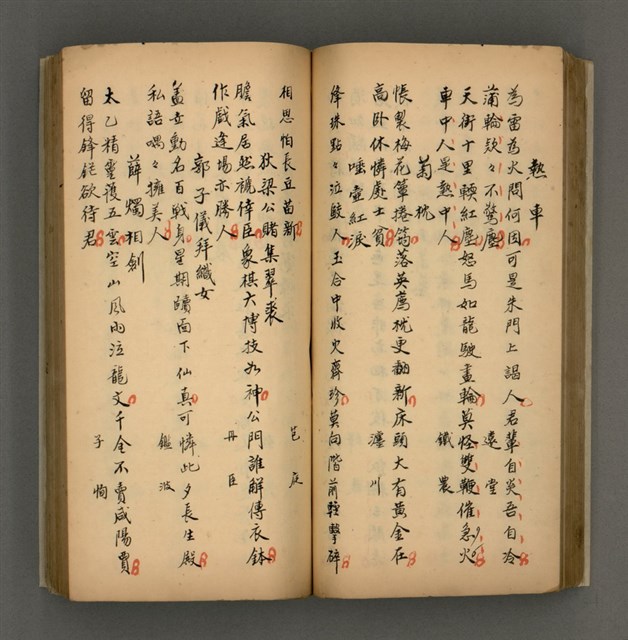 熱車
為雷為火問何因可是朱門上謁人君輩自炎吾自冷
蒲輪欸々不驚塵 遠堂
天街十里輭紅塵怒馬如龍駛畫輪莫怪雙鞭催急火
車中人是熱中人 鐵農
菊枕
悵製梅花簟捲筠落英薦枕更翻新床頭大有黃金在
高臥休憐處士貧 瀍川
唾壺紅淚
絳珠點々泣鮫人玉合中收火齊珍莫向階前輕擊碎
相思怕長豆苗新 芑庭
狄梁公賭集翠裘
膽氣居然褫倖臣象棋六博技如神公門誰解傳衣鉢
作戲逢場亦勝人 丹臣
郭子儀拜織女
蓋世勳名百戰身星期驀面下仙真可憐此夕長生殿
私語喁々擁美人 鑑波
薛燭相劍
太乙精靈護五雲空山風雨泣龍文千金不賣咸陽賈
留得鋒鋩欲待君 子恂